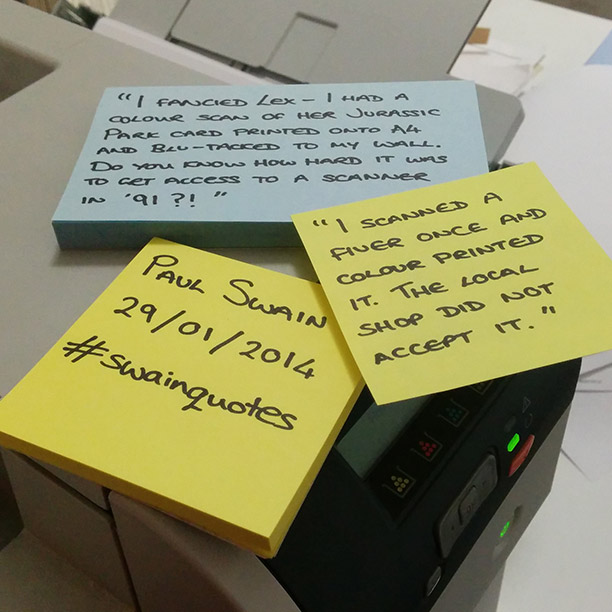 "I FANCIED LEX - I HAD A
COLOUR SCAN OF HER JURASSIC
PARK CARD PRINTED ONTO A4
AND BLU-TACKED TO MY WALL.
DO YOU KNOW HOW HARD IT WAS
TO GET ACCESS TO A SCANNER
IN '91?!"
"I SCANNED A
FIVER ONCE AND
COLOUR PRINTED
IT. THE LOCAL
SHOP DID NOT
ACCEPT IT."
PAUL SWAIN
29/01/2014
#swainquotes